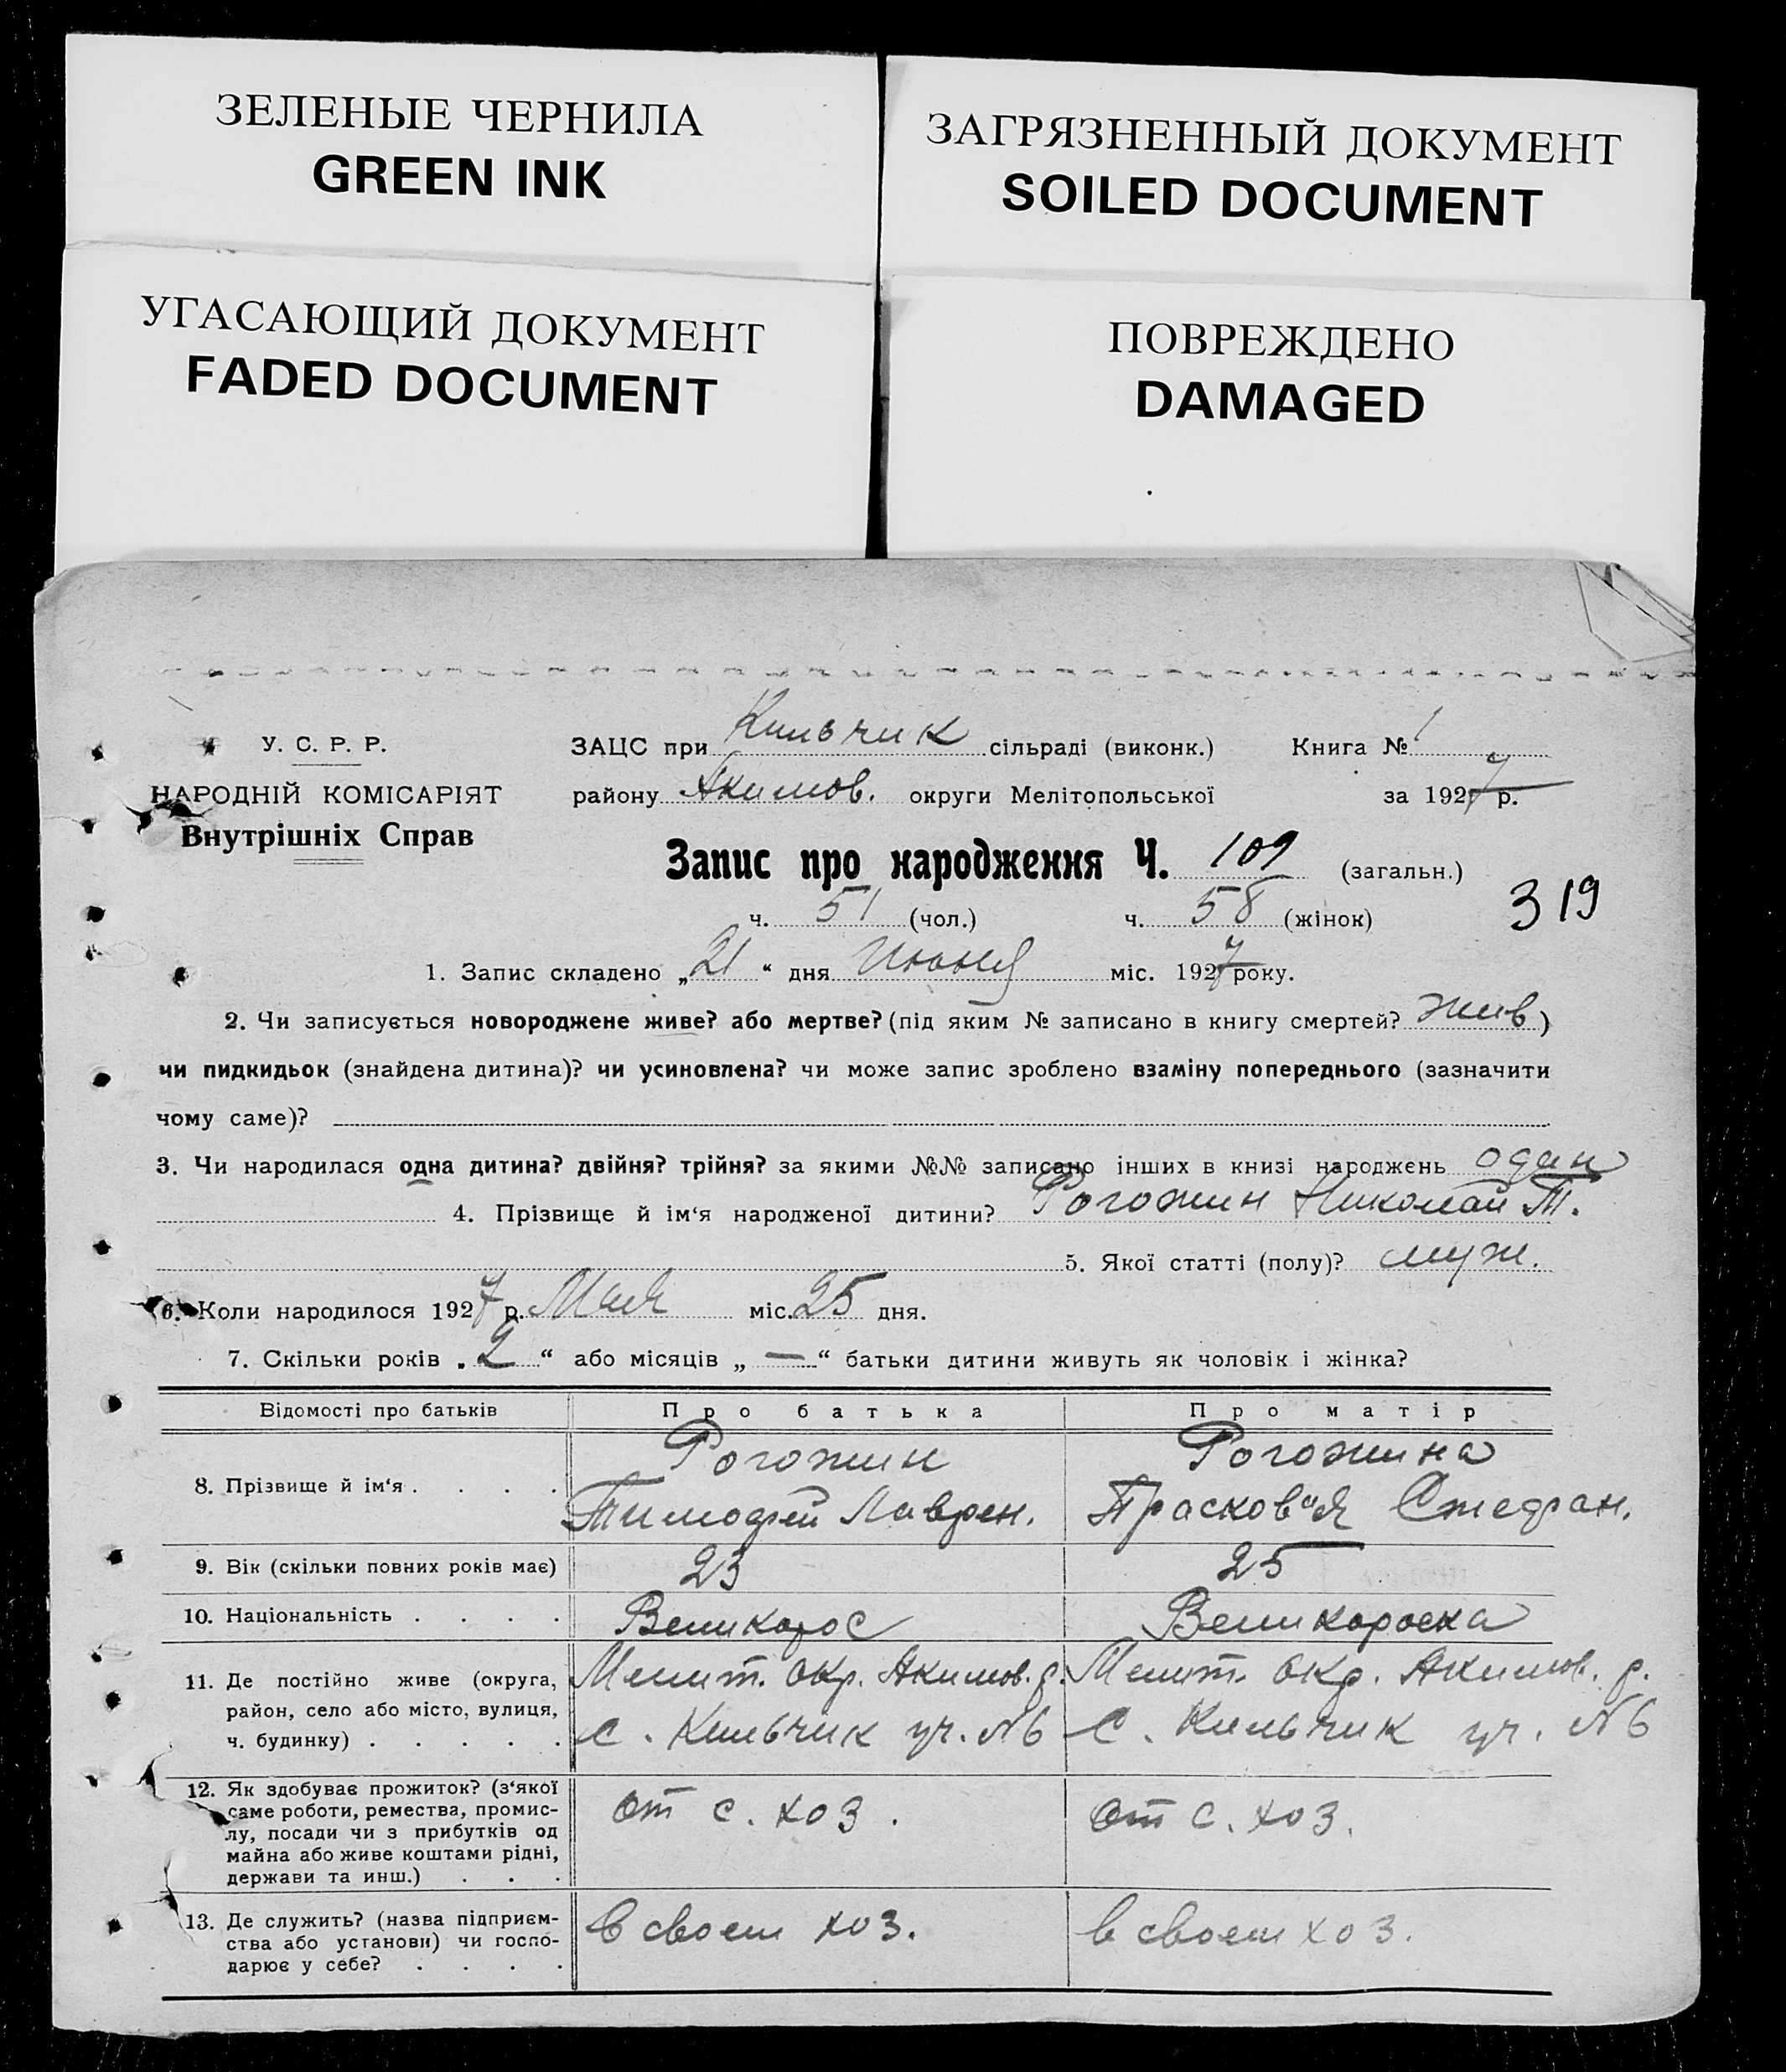 ЗЕЛЕНЫЕ ЧЕРНИЛА
GREEN INK
ЗАГРЯЗНЕННЫЙ ДОКУМЕНТ
SOILED DOCUMENT
УГАСАЮЩИЙ ДОКУМЕНТ
FADED DOCUMENT
ПОВРЕЖДЕНО
DAMAGED
У. С. Р. Р.
НАРОДНІЙ КОМІСАРІЯТ
Внутрішніх Справ
ЗАЦС при Кильчик сільраді (виконк.) Книга № 1
району Акимов. округи Мелітопольської за 1927 р.
Запис про народження Ч. 109 (загальн.)
ч. 51 (чол.) ч. 58 (жінок) 319
1. Запис складено „21“ дня Июня міс. 1927 року.
2. Чи записується новороджене живе? або мертве? (під яким № записано в книгу смертей? жив)
чи пидкидьок (знайдена дитина)? чи усиновлена? чи може запис зроблено взаміну попереднього (зазначити
чому саме)?
3. Чи народилася одна дитина? двійня? трійня? за якими №№ записано інших в книзі народжень один
4. Прізвище й ім‘я народженої дитини? Рогожин Николай Т.
5. Якої статті (полу)? муж.
6. Коли народилося 1927 р. Мая міс. 25 дня.
7. Скільки років „2“ або місяців „—“ батьки дитини живуть як чоловік і жінка?
Відомості про батьків Про батька Про матір
8. Прізвище й ім‘я . . . . Рогожин Рогожина
Тимофей Лаврен. Прасковия Стефан.
9. Вік (скільки повних років має) 23 25
10. Національність . . . . Великорос Великороска
11. Де постійно живе (округа, Мелит. окр. Акимов. р. Мелит. окр. Акимов. р.
район, село або місто, вулиця, с. Кильчик уч. N6 с. Кильчик уч. N6
ч. будинку) . . . . .
12. Як здобуває прожиток? (з‘якої от с. хоз. от с. хоз.
саме роботи, ремества, промис-
лу, посади чи з прибутків од
майна або живе коштами рідні,
держави та инш.) . . .
13. Де служить? (назва підприєм- в своем хоз. в своем хоз.
ства або установи) чи госпо-
дарює у себе? . . . .